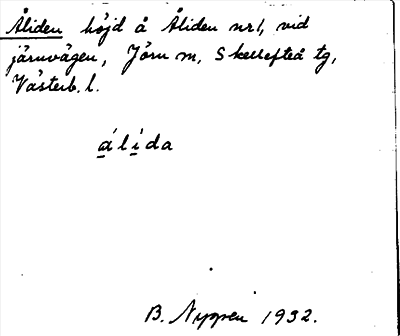 Åliden höjd å Åliden nr 1, vid
järnvägen, Jörn sn, Skellefteå tg,
Västerb. l.
á l í d a
B. Nyppen 1932.